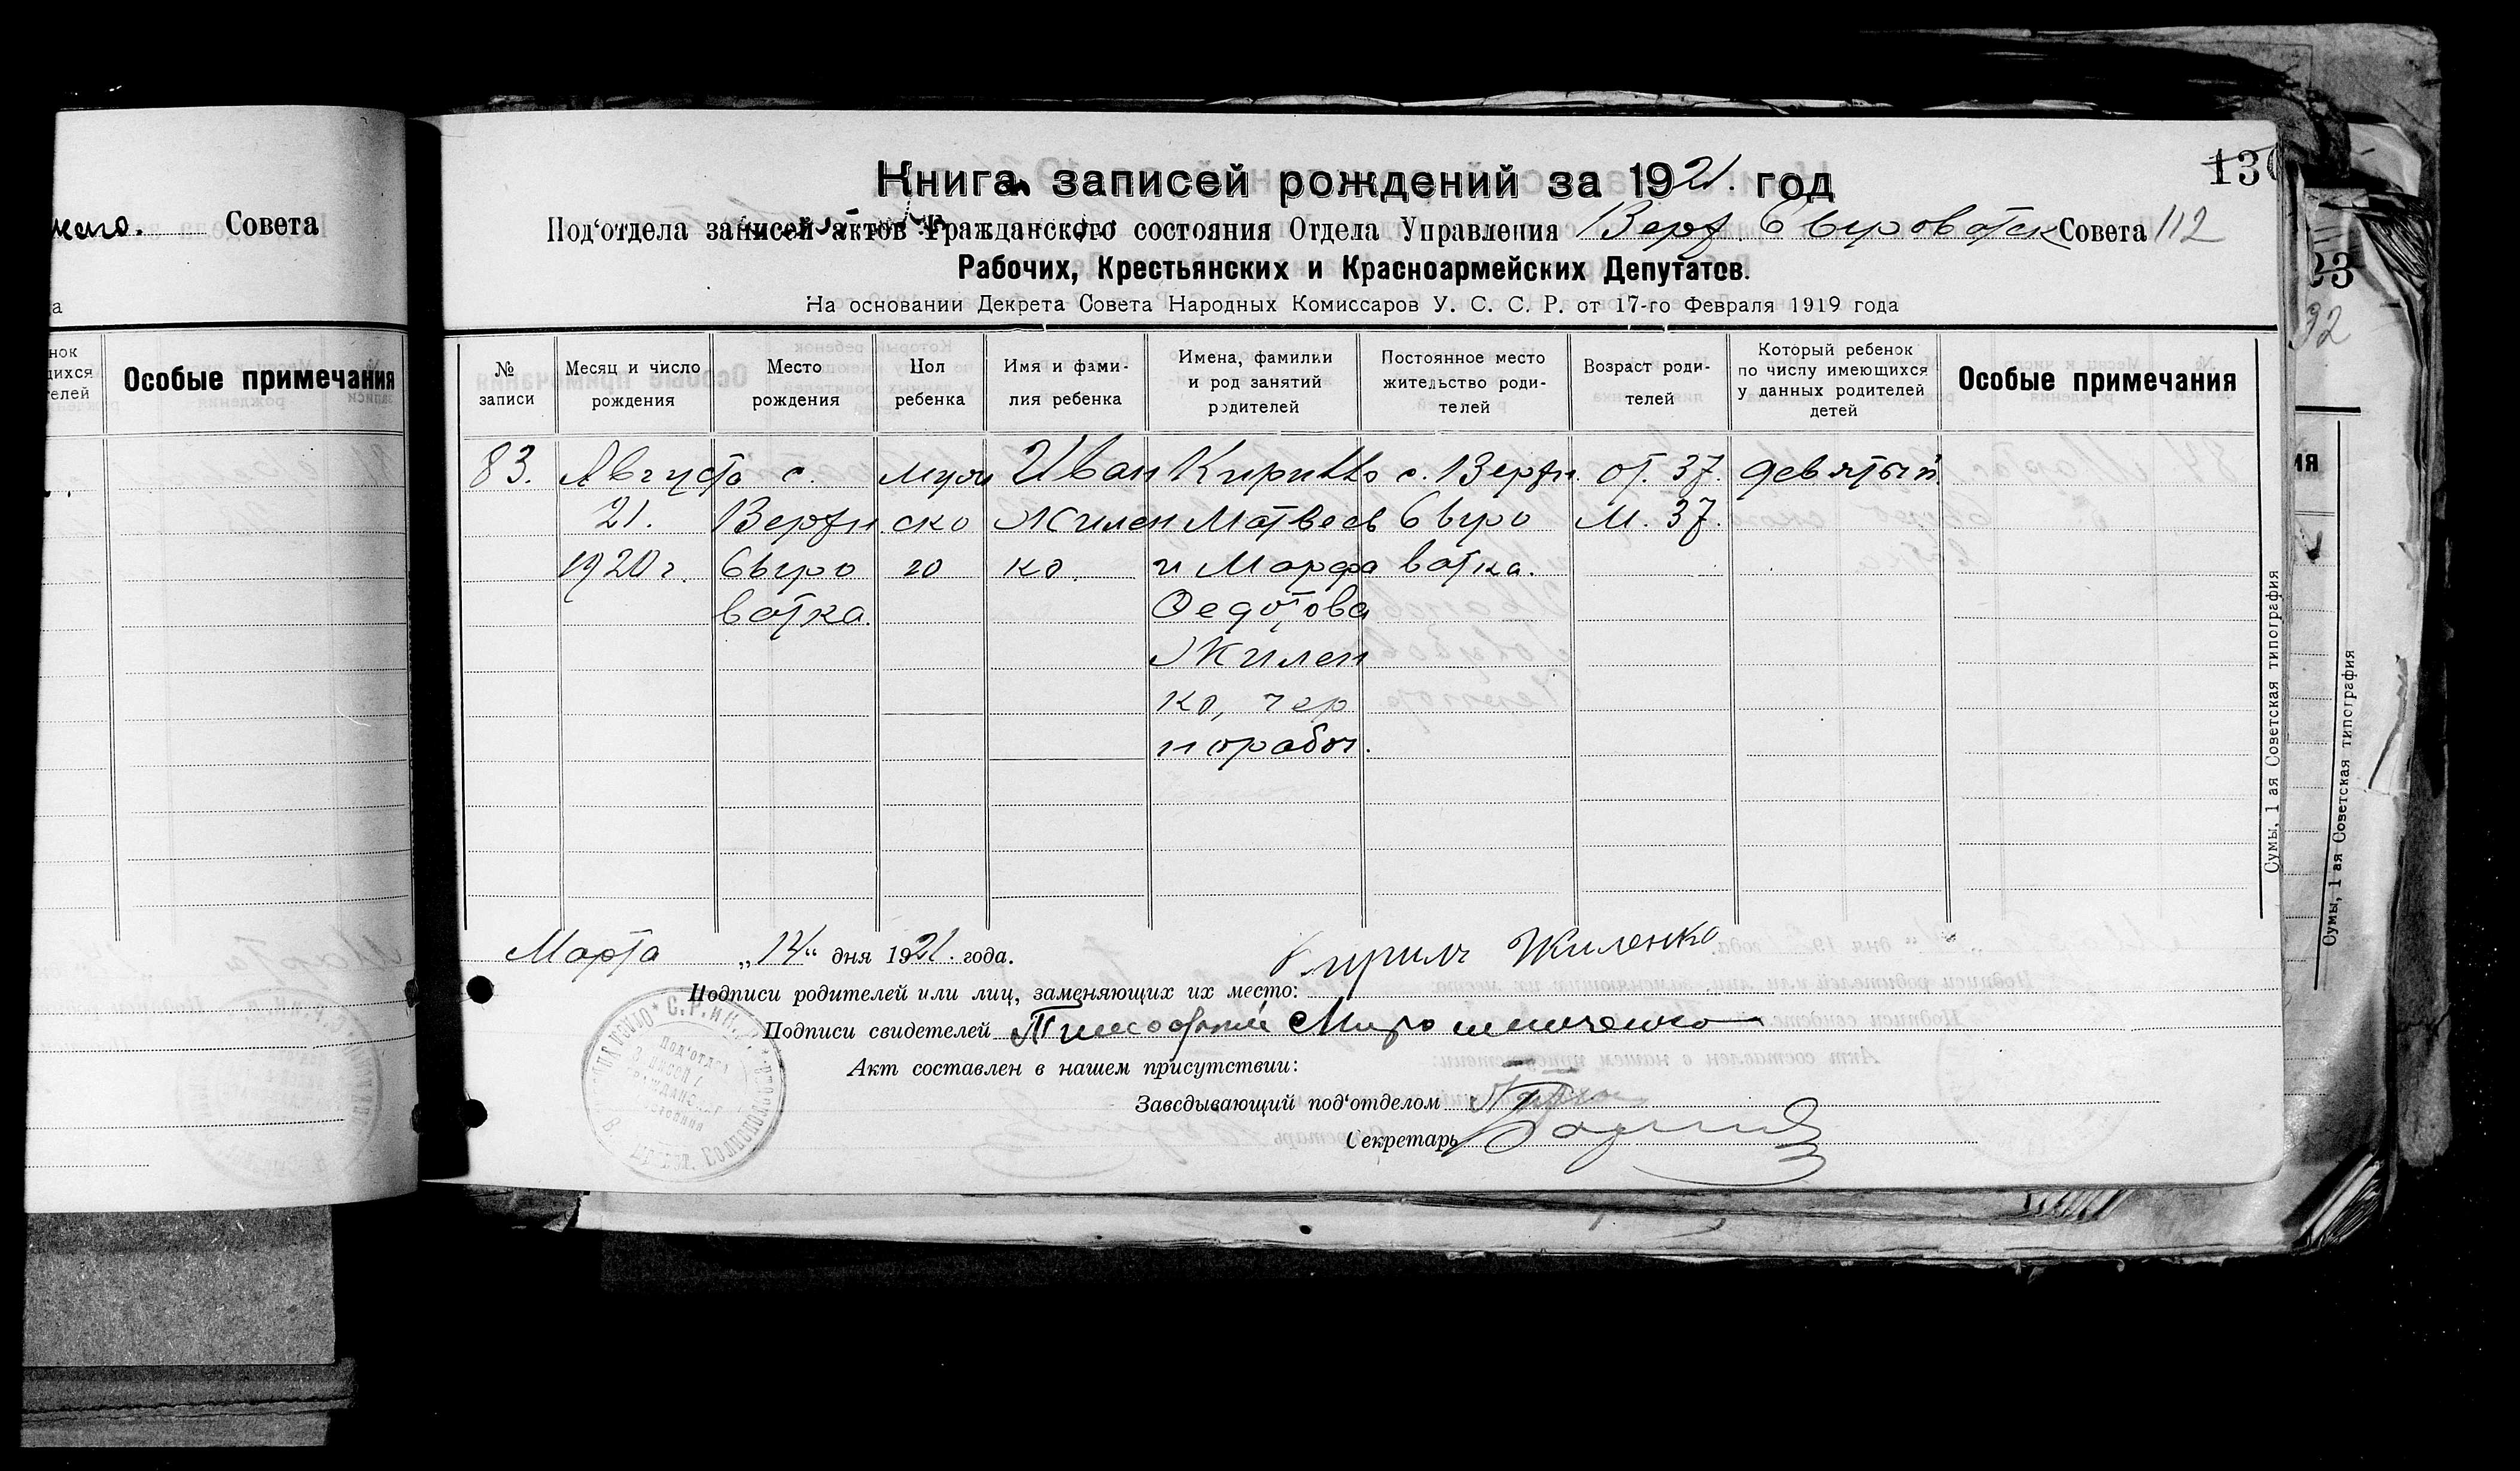 Совета
Особые примечания
Книга записей рождений за 1921. год
130
Под'отдела записей актов Гражданского состояния Отдела Управления Верх. Сыроватск Совета 112
Рабочих, Крестьянских и Красноармейских Депутатов.
На основании Декрета Совета Народных Комиссаров У. С. С. Р. от 17-го Февраля 1919 года
№ записи
Месяц и число рождения
Место рождения
Пол ребенка
Имя и фами-
лия ребенка
Имена, фамилии
и род занятий
родителей
Постоянное место
жительство роди-
телей
Возраст роди-
телей
Который ребенок
по числу имеющихся
у данных родителей
детей
Особые примечания
83.
Августа
21.
1920 г.
с.
Верхн.
Сыро
ватка.
муж
ско
го
Иван
Жилен
ко.
Кирилло
Матвеев
и Марфа
Федотова
Жилен
ко, чер
норабоч.
с. Верхн.
Сыро
ватка.
от. 37.
М. 37.
девятый.
Марта „14“ дня 1921. года.
Кирилъ Жиленко
Подписи родителей или лиц, заменяющих их место:
Подписи свидетелей Тимофей Мирошниченко
Акт составлен в нашем присутствии:
Заведывающий под'отделом
Секретарь
Сумы, 1 ая Советская типография
23
32
Сумы, 1 ая Советская типография